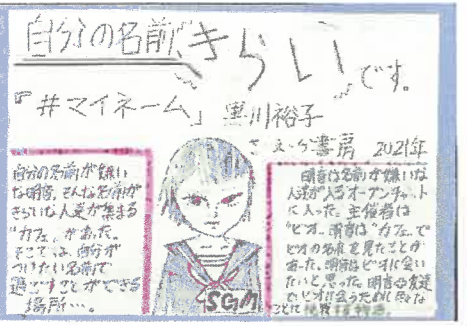 自分の名前「きらい」です。
『#マイネーム』 黒川裕子
さ・え・ら書房 2021年
自分の名前が嫌い
な明音。そんな名前が
きらいな人達が集まる
"カフェ"があった。
そこでは、自分が
つけたい名前で
過ごすことができる
場所…。
SGM
明音は名前が嫌いな
人達が入るオープンチャット
に入った。主催者は
"ビオ"。明音は"カフェ"で
ビオの名前を見たことが
あった。明音はビオに会い
たいと思った。明音の友達
でビオに会うために
ことに